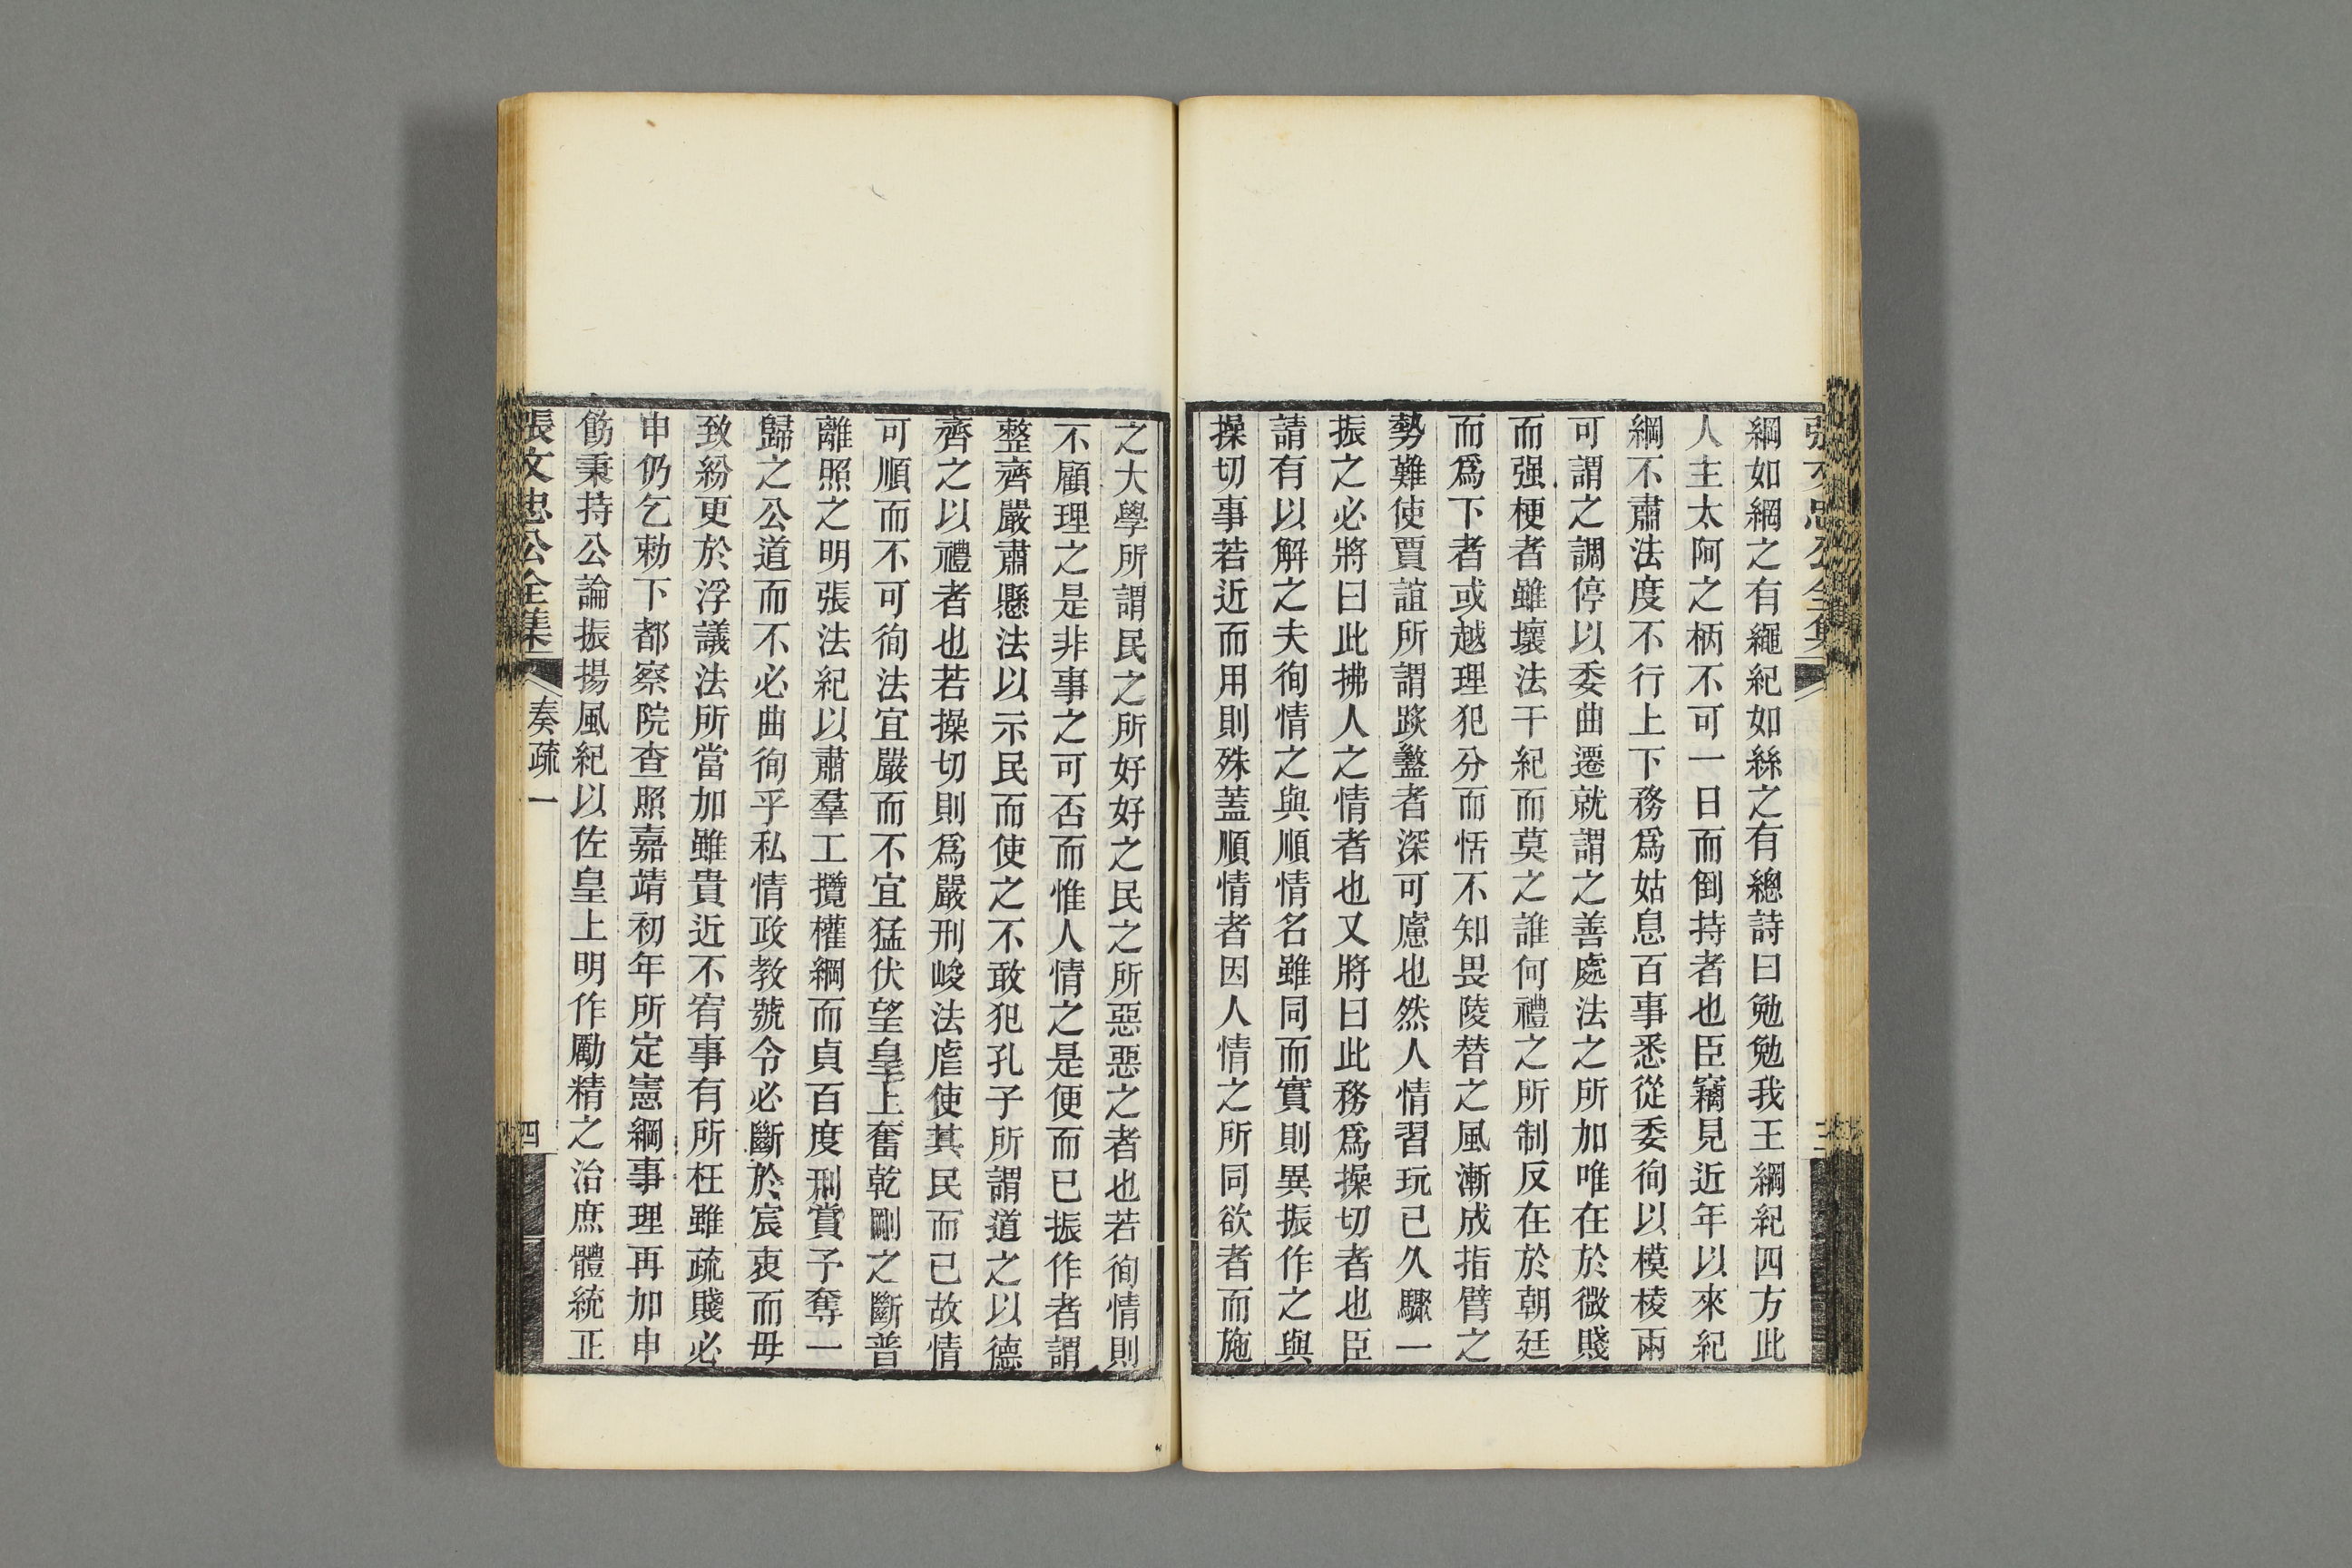 綱如網之有繩紀如絲之有總詩曰勉勉我王綱紀四方此
人主太阿之柄不可一日而倒持者也臣竊見近年以來紀
綱不肅法度不行上下務爲姑息百事悉從委徇以模棱兩
可謂之調停以委曲遷就謂之善處法之所加唯在於微賤
而强梗者雖壞法干紀而莫之誰何禮之所制反在於朝廷
而爲下者或越理犯分而恬不知畏陵替之風漸成指臂之
勢難使賈誼所謂蹊盭者深可慮也然人情習玩已久驟一
振之必將曰此拂人之情者也又將曰此務爲操切者也臣
請有以解之夫徇情之與順情名雖同而實則異振作之與
操切事若近而用則殊蓋順情者因人情之所同欲者而施
之大學所謂民之所好好之民之所惡惡之者也若徇情則
不顧理之是非事之可否而惟人情之是便而已振作者謂
整齊嚴肅懸法以示民而使之不敢犯孔子所謂道之以德
齊之以禮者也若操切則爲嚴刑峻法虐使其民而已故情
可順而不可徇法宜嚴而不宜猛伏望皇上奮乾剛之斷普
離照之明張法紀以肅羣工攬權綱而貞百度刑賞予奪一
歸之公道而不必曲徇乎私情政教號令必斷於宸衷而毋
致紛更於浮議法所當加雖貴近不宥事有所枉雖疏賤必
申仍乞勅下都察院查照嘉靖初年所定憲綱事理再加申
飭秉持公論振揚風紀以佐皇上明作勵精之治庶體統正
張文忠公全集 奏疏一 四